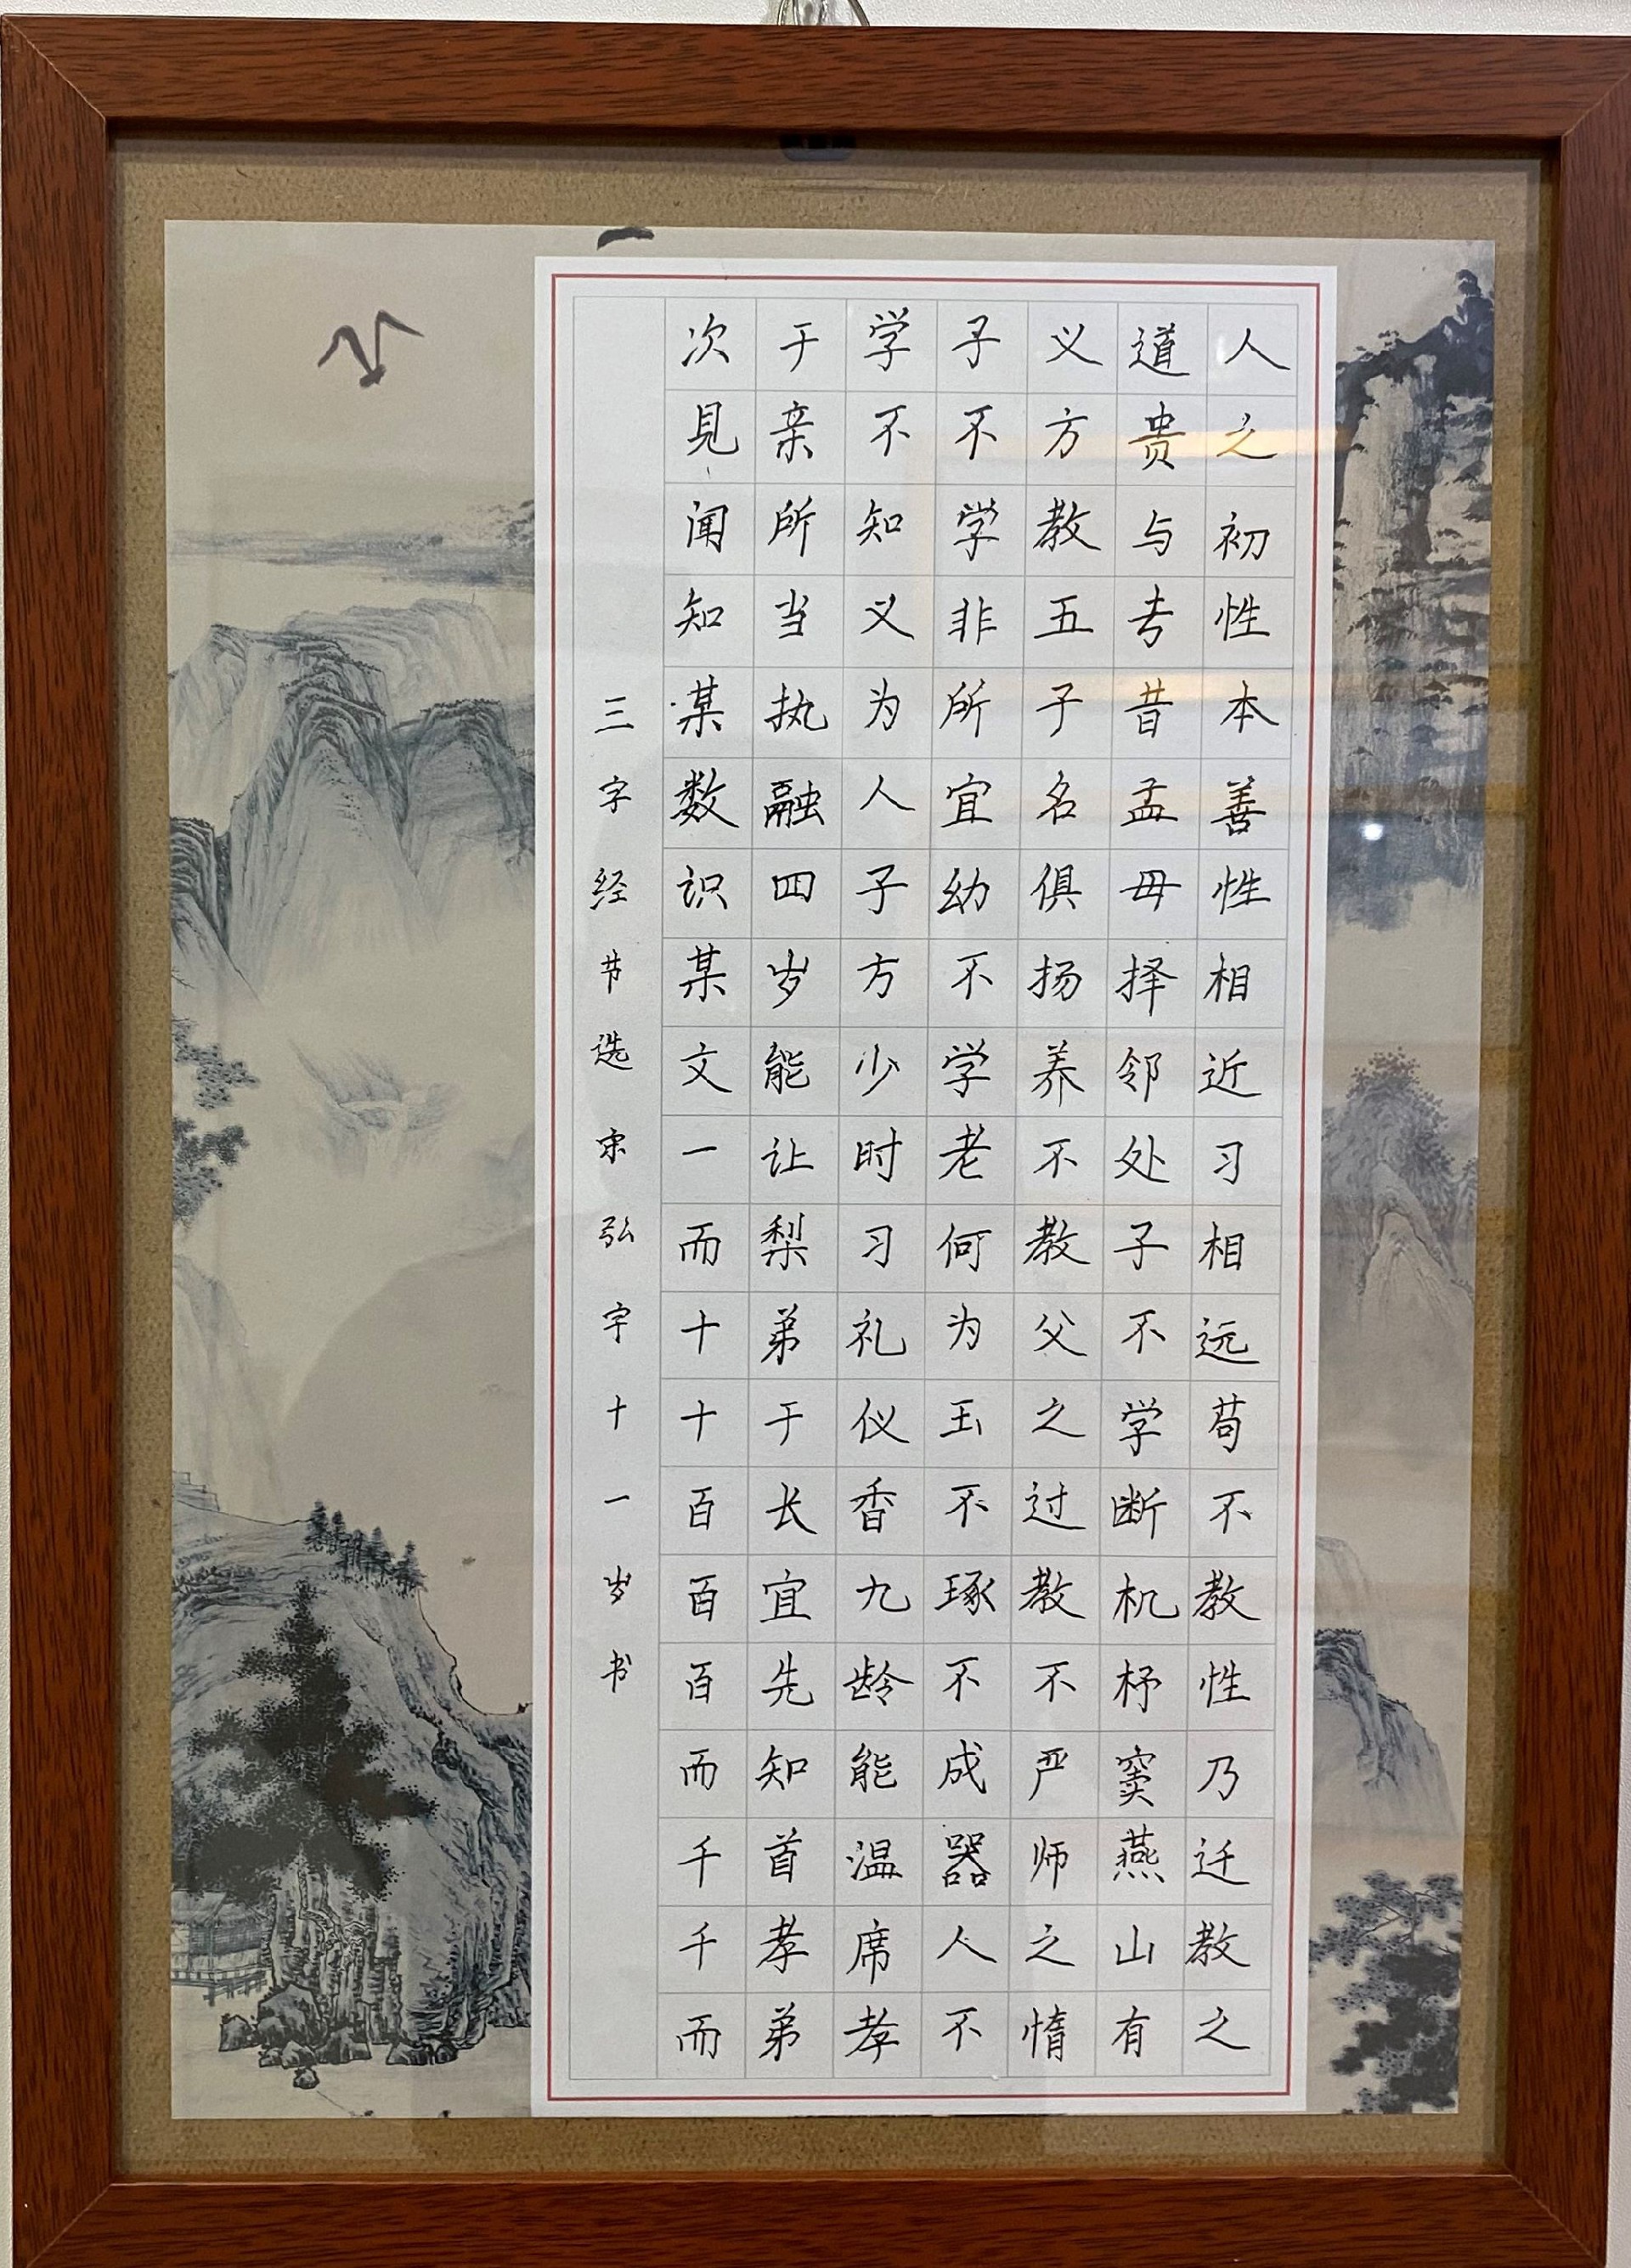 人之初性本善性相近习相远苟不教性乃迁教之
道贵与专昔孟母择邻处子不学断机杼窦燕山有
义方教五子名俱扬养不教父之过教不严师之惰
子不学非所宜幼不学老何为玉不琢不成器人不
学不知义为人子方少时习礼仪香九龄能温席孝
于亲所当执融四岁能让梨弟于长宜先知首孝弟
次见闻知某数识某文一而十十百百百而千千而
三字经节选宋弘宇十一岁书